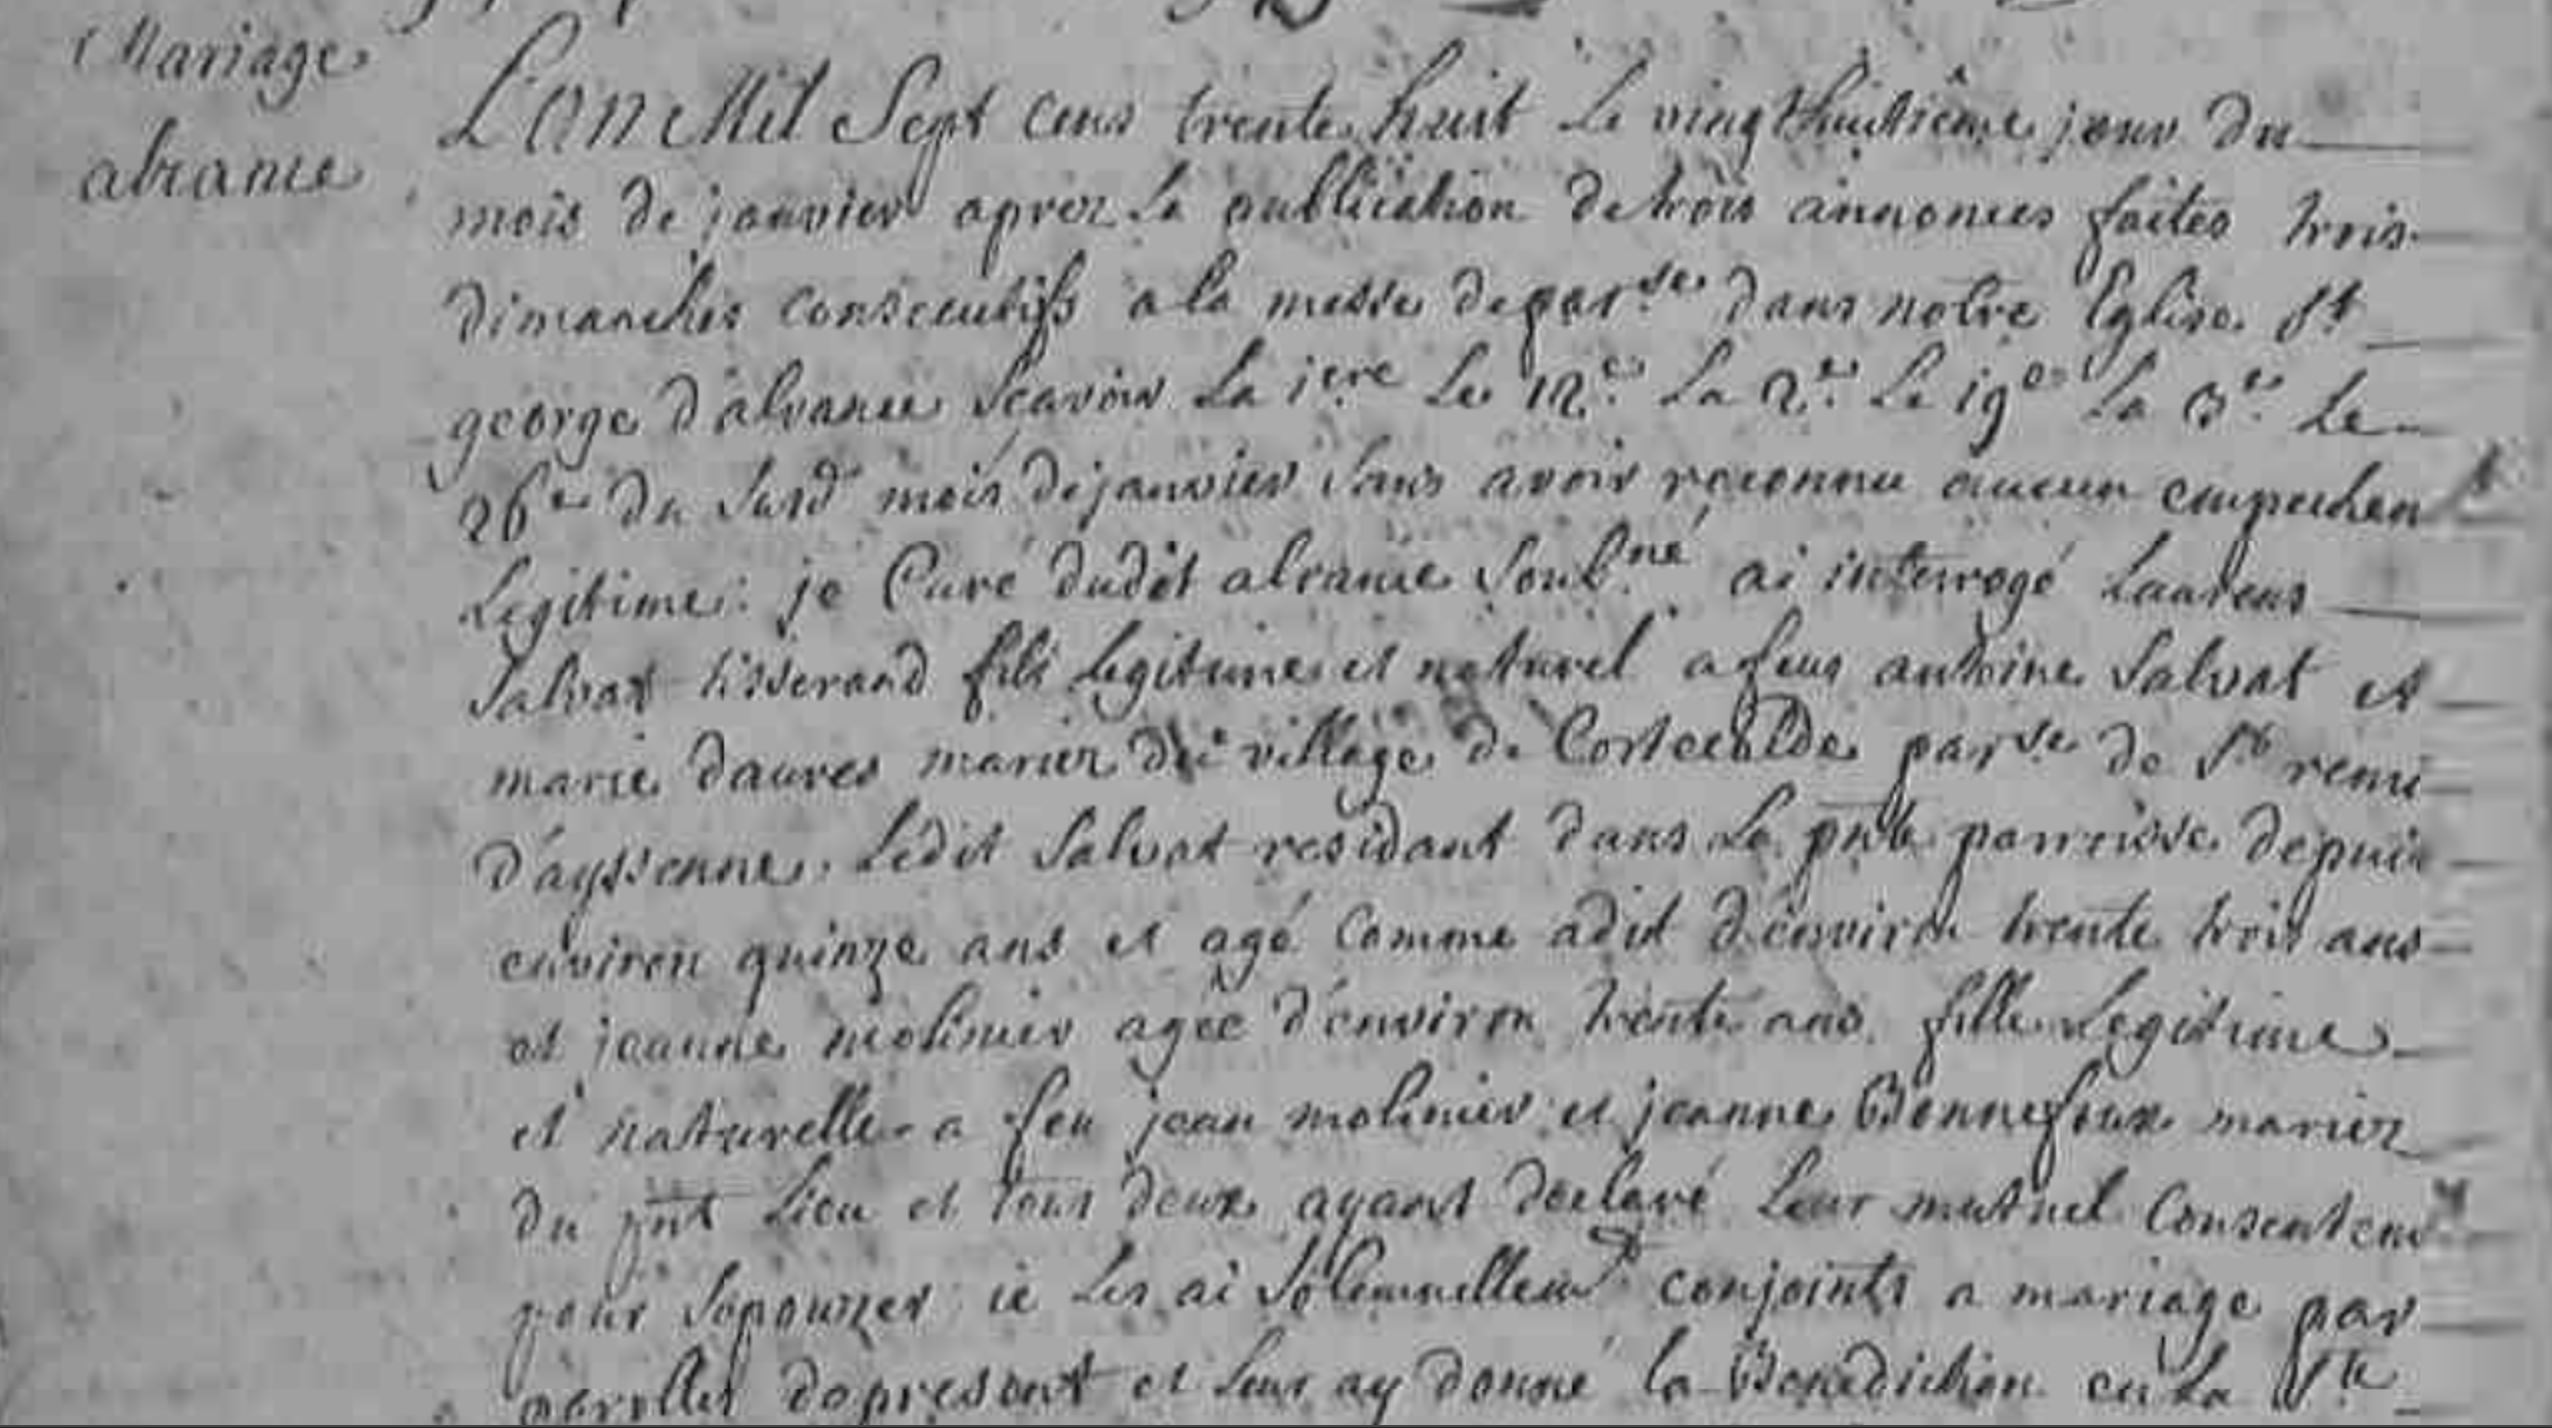 Mariage
abrance
L'an Mil Sept cens trente huit le vingthuitième jour du
mois de janvier aprez la publication de trois annonces faites trois
dimanches consecutifs a la messe de par.se dans notre Eglise St
george d'abrance scavoir la 1ere le 12.e la 2.e le 19e la 3.e le
26e du susd mois de janvier sans avoir reconnu aucun empechent
legitime: je Curé dudit abrance sousné ai interrogé Laurens
Salvat tisserand fils legitime et naturel a feus antoine Salvat et
marie daures mariez du village de par.se de St remi
d'ayssenne. Ledit Salvat residant dans la pnte parroisse depuis
environ quinze ans et agé comme a dit d'environ trente trois ans
et jeanne molinier agée d'environ trente ans fille legitime
et naturelle a feu jean molinier et jeanne Bonnefoux mariez
du pnt lieu et tous deux ayant declaré leur mutuel consentemt
pour s'epouzer ie les ai solemnellemt conjoints a mariage par
parolles de present et leur ay donné la Benediction en la Ste